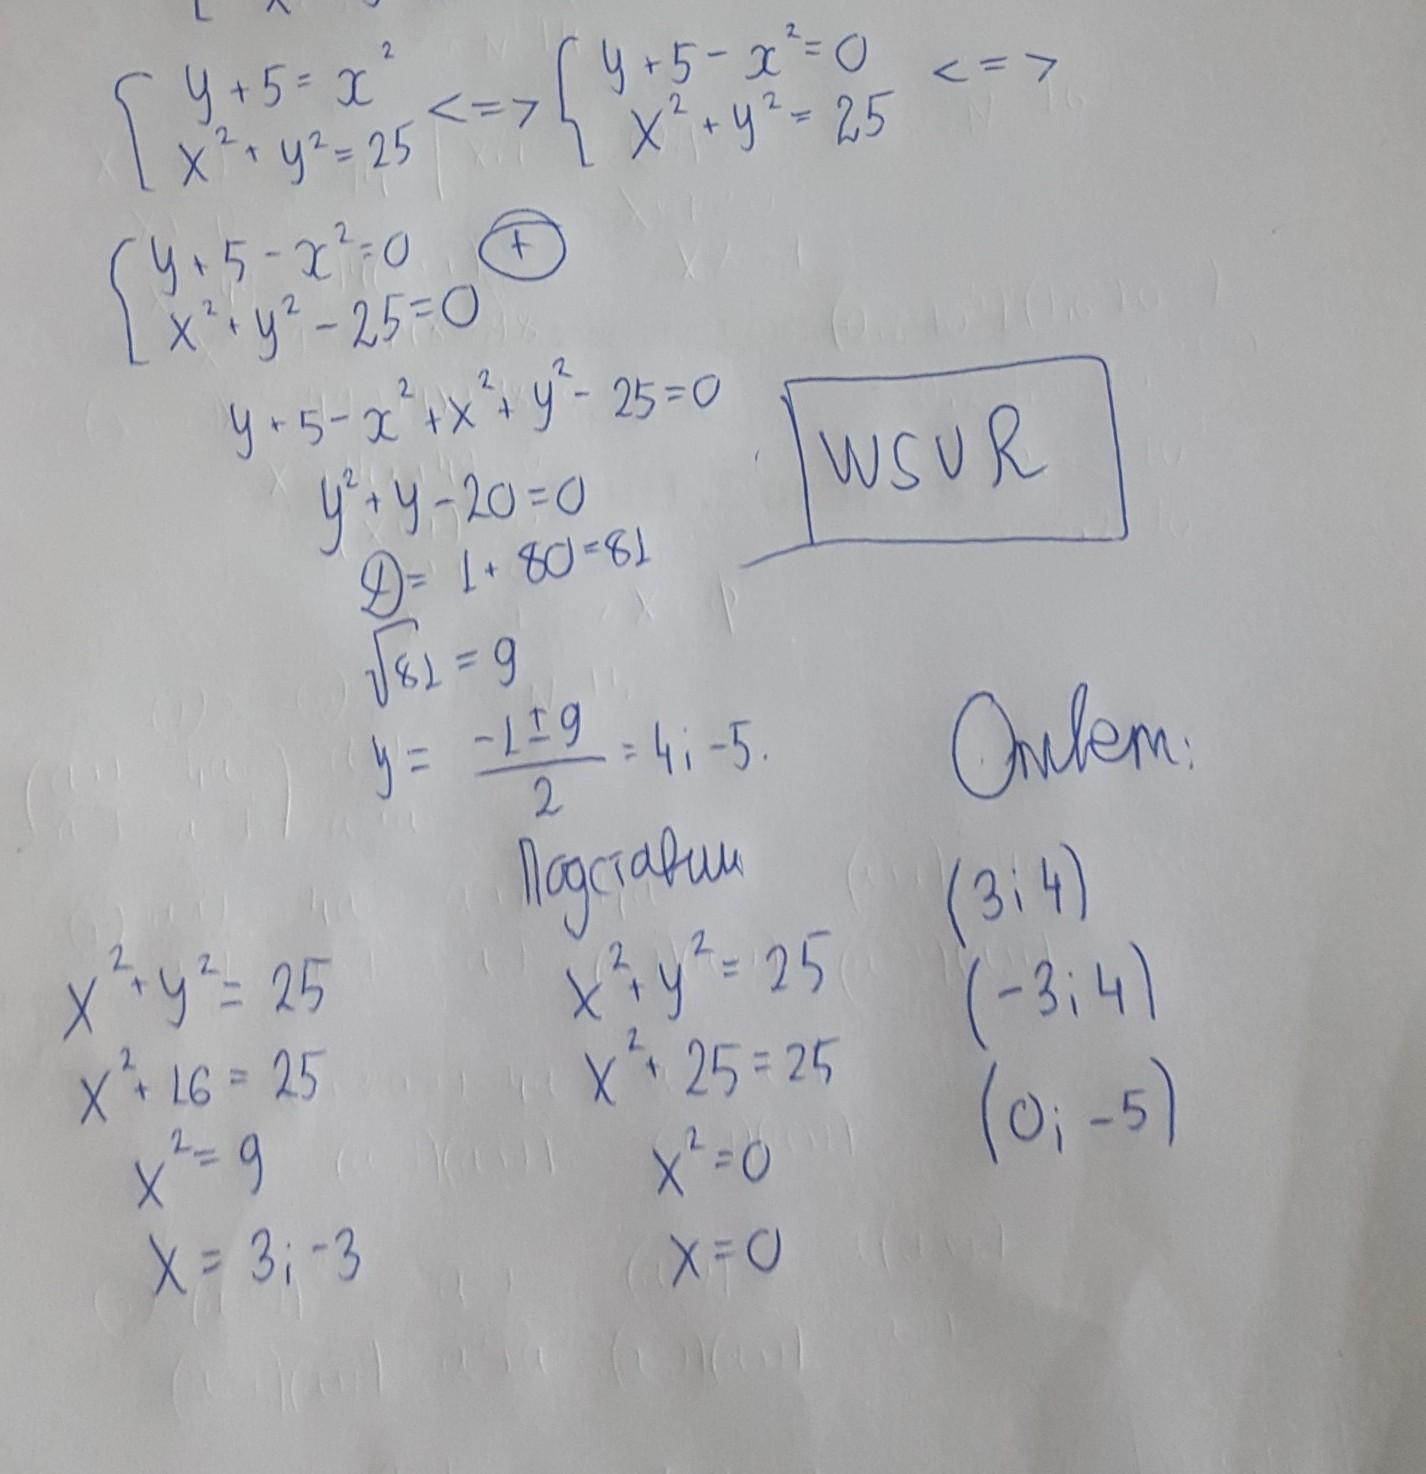 { y + 5 = x² <=> { y + 5 - x² = 0 <=>
x² + y² = 25 x² + y² = 25
{ y + 5 - x² = 0 (+)
x² + y² - 25 = 0
y + 5 - x² + x² + y² - 25 = 0
y² + y - 20 = 0
D = 1 + 80 = 81
√81 = 9
y = (-1 ± 9) / 2 = 4; -5.
WSUR
Подставим
x² + y² = 25
x² + 16 = 25
x² = 9
x = 3; -3
x² + y² = 25
x² + 25 = 25
x² = 0
x = 0
Ответ:
(3; 4)
(-3; 4)
(0; -5)